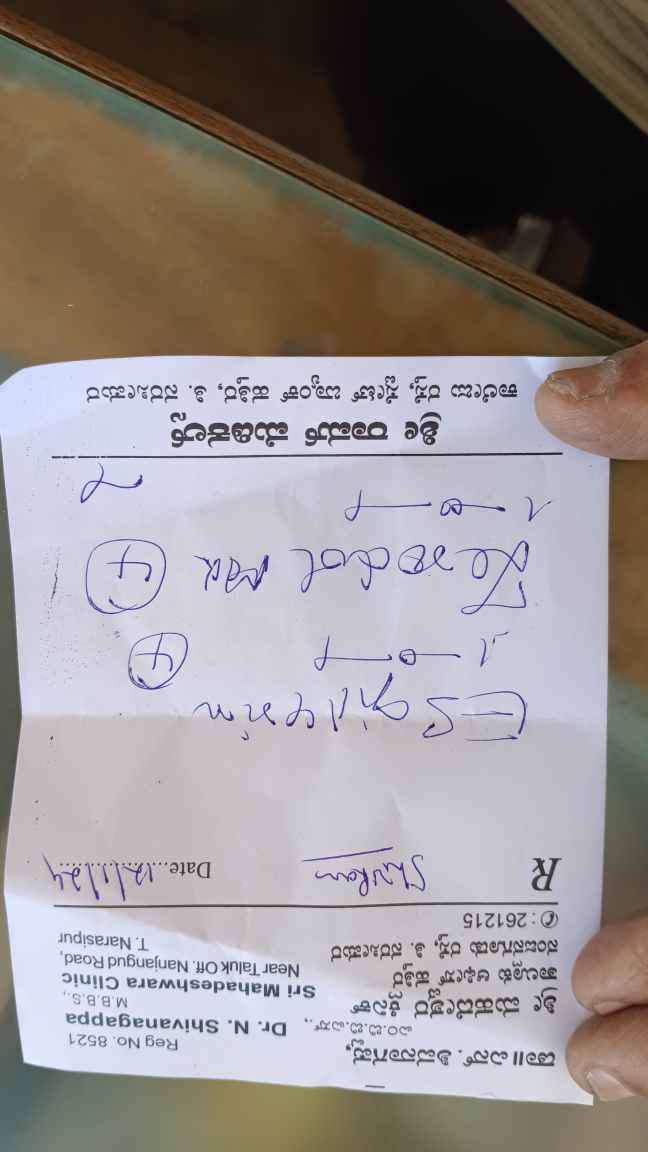 ಡಾ॥ ಎನ್. ಶಿವನಾಗಪ್ಪ,
ಎಂ.ಬಿ.ಬಿ.ಎಸ್.,
ಶ್ರೀ ಮಹದೇಶ್ವರ ಕ್ಲಿನಿಕ್
ತಾಲ್ಲೂಕು ಆಫೀಸ್ ಹತ್ತಿರ
ನಂಜನಗೂಡು ರಸ್ತೆ, ತಿ. ನರಸೀಪುರ
✆ : 261215
Reg No. 8521
Dr. N. Shivanagappa
M.B.B.S.,
Sri Mahadeshwara Clinic
Near Taluk Off. Nanjangud Road,
T. Narasipur
R Date 12/1/24
1-0-1
4
Zerodol 4
1-0-1
ಶ್ರೀ ರಾಮ್ ಮೆಡಿಕಲ್ಸ್
ಕಾಲೇಜು ರಸ್ತೆ, ಸ್ಟೇಟ್ ಬ್ಯಾಂಕ್ ಹತ್ತಿರ, ತಿ. ನರಸೀಪುರ